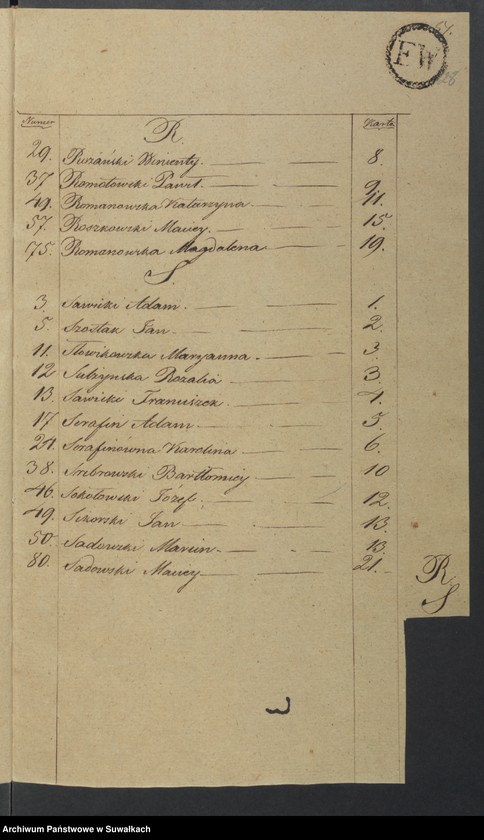 51.
EW
Numer Karta
R.
29. Różański Wincenty. 8.
37 Romotowski Paweł. 9.
49. Romanowska Katarzyna 11.
57. Roszkowski Maciej. 15.
75. Romanowska Magdalena 19.
S.
3. Sawicki Adam. 1.
5. Szostak Jan 2.
11. Słowikowska Maryanna. 3.
12 Rozalia 3.
13. Sawicki Franciszek. 4.
17 Serafin Adam 5.
24. Serafinówna Karolina 6.
38. Srebrowski Bartłomiej 10
46. Sokołowski Józef. 12.
49. Sikorski Jan 13.
50. Sadowski Marcin. 13.
80. Sadowski Maciej 21.
R.
S
Archiwum Państwowe w Suwałkach